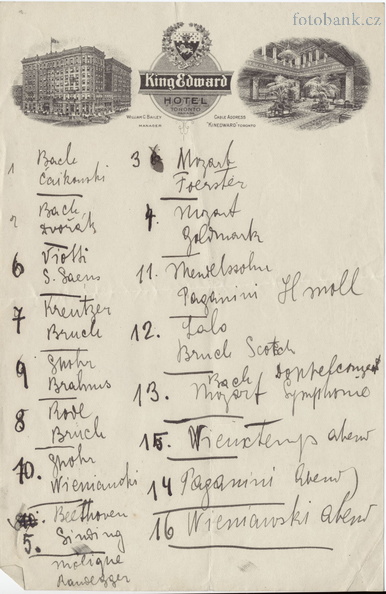 fotobank.cz
King Edward
HOTEL
TORONTO
WILLIAM G. BAILEY
MANAGER
CABLE ADDRESS
"KINGEDWARD" TORONTO
1 Bach
Čaikovski
2 Bach
Dvořák
6 Viotti
S. Saëns
7 Kreutzer
Bruch
9 Spohr
Brahms
8 Rode
Bruch
10. Spohr
Wieniawski
Beethoven
5. Sinding
Molique
Randegger
3 Mozart
Foerster
4. Mozart
Goldmark
11. Mendelssohn
Paganini H moll
12. Lalo
Bruch Scotch
13. Bach Doppelconcert
Mozart Symphonie
15. Vieuxtemps abend
14 Paganini Abend
16 Wieniawski abend